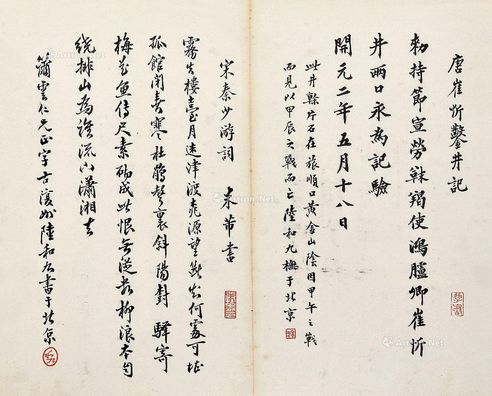 唐崔忻鑿井記
勅持節宣勞靺鞨使鴻臚卿崔忻
井兩口永為記驗
開元二年五月十八日
此井縣片石在旅順口黃金山陰因甲午之戰
而見以甲辰之戰而亡陸和九撫于北京
宋秦少游詞 米芾書
霧失樓臺月迷津渡桃源望斷知何處可堪
孤館閉春寒杜鵑聲裏斜陽樹 驛寄
梅花魚傳尺素砌成此恨無從數郴浪本自
繞郴山為誰流下瀟湘去
雲仁兄正字古復州陸和九書于北京